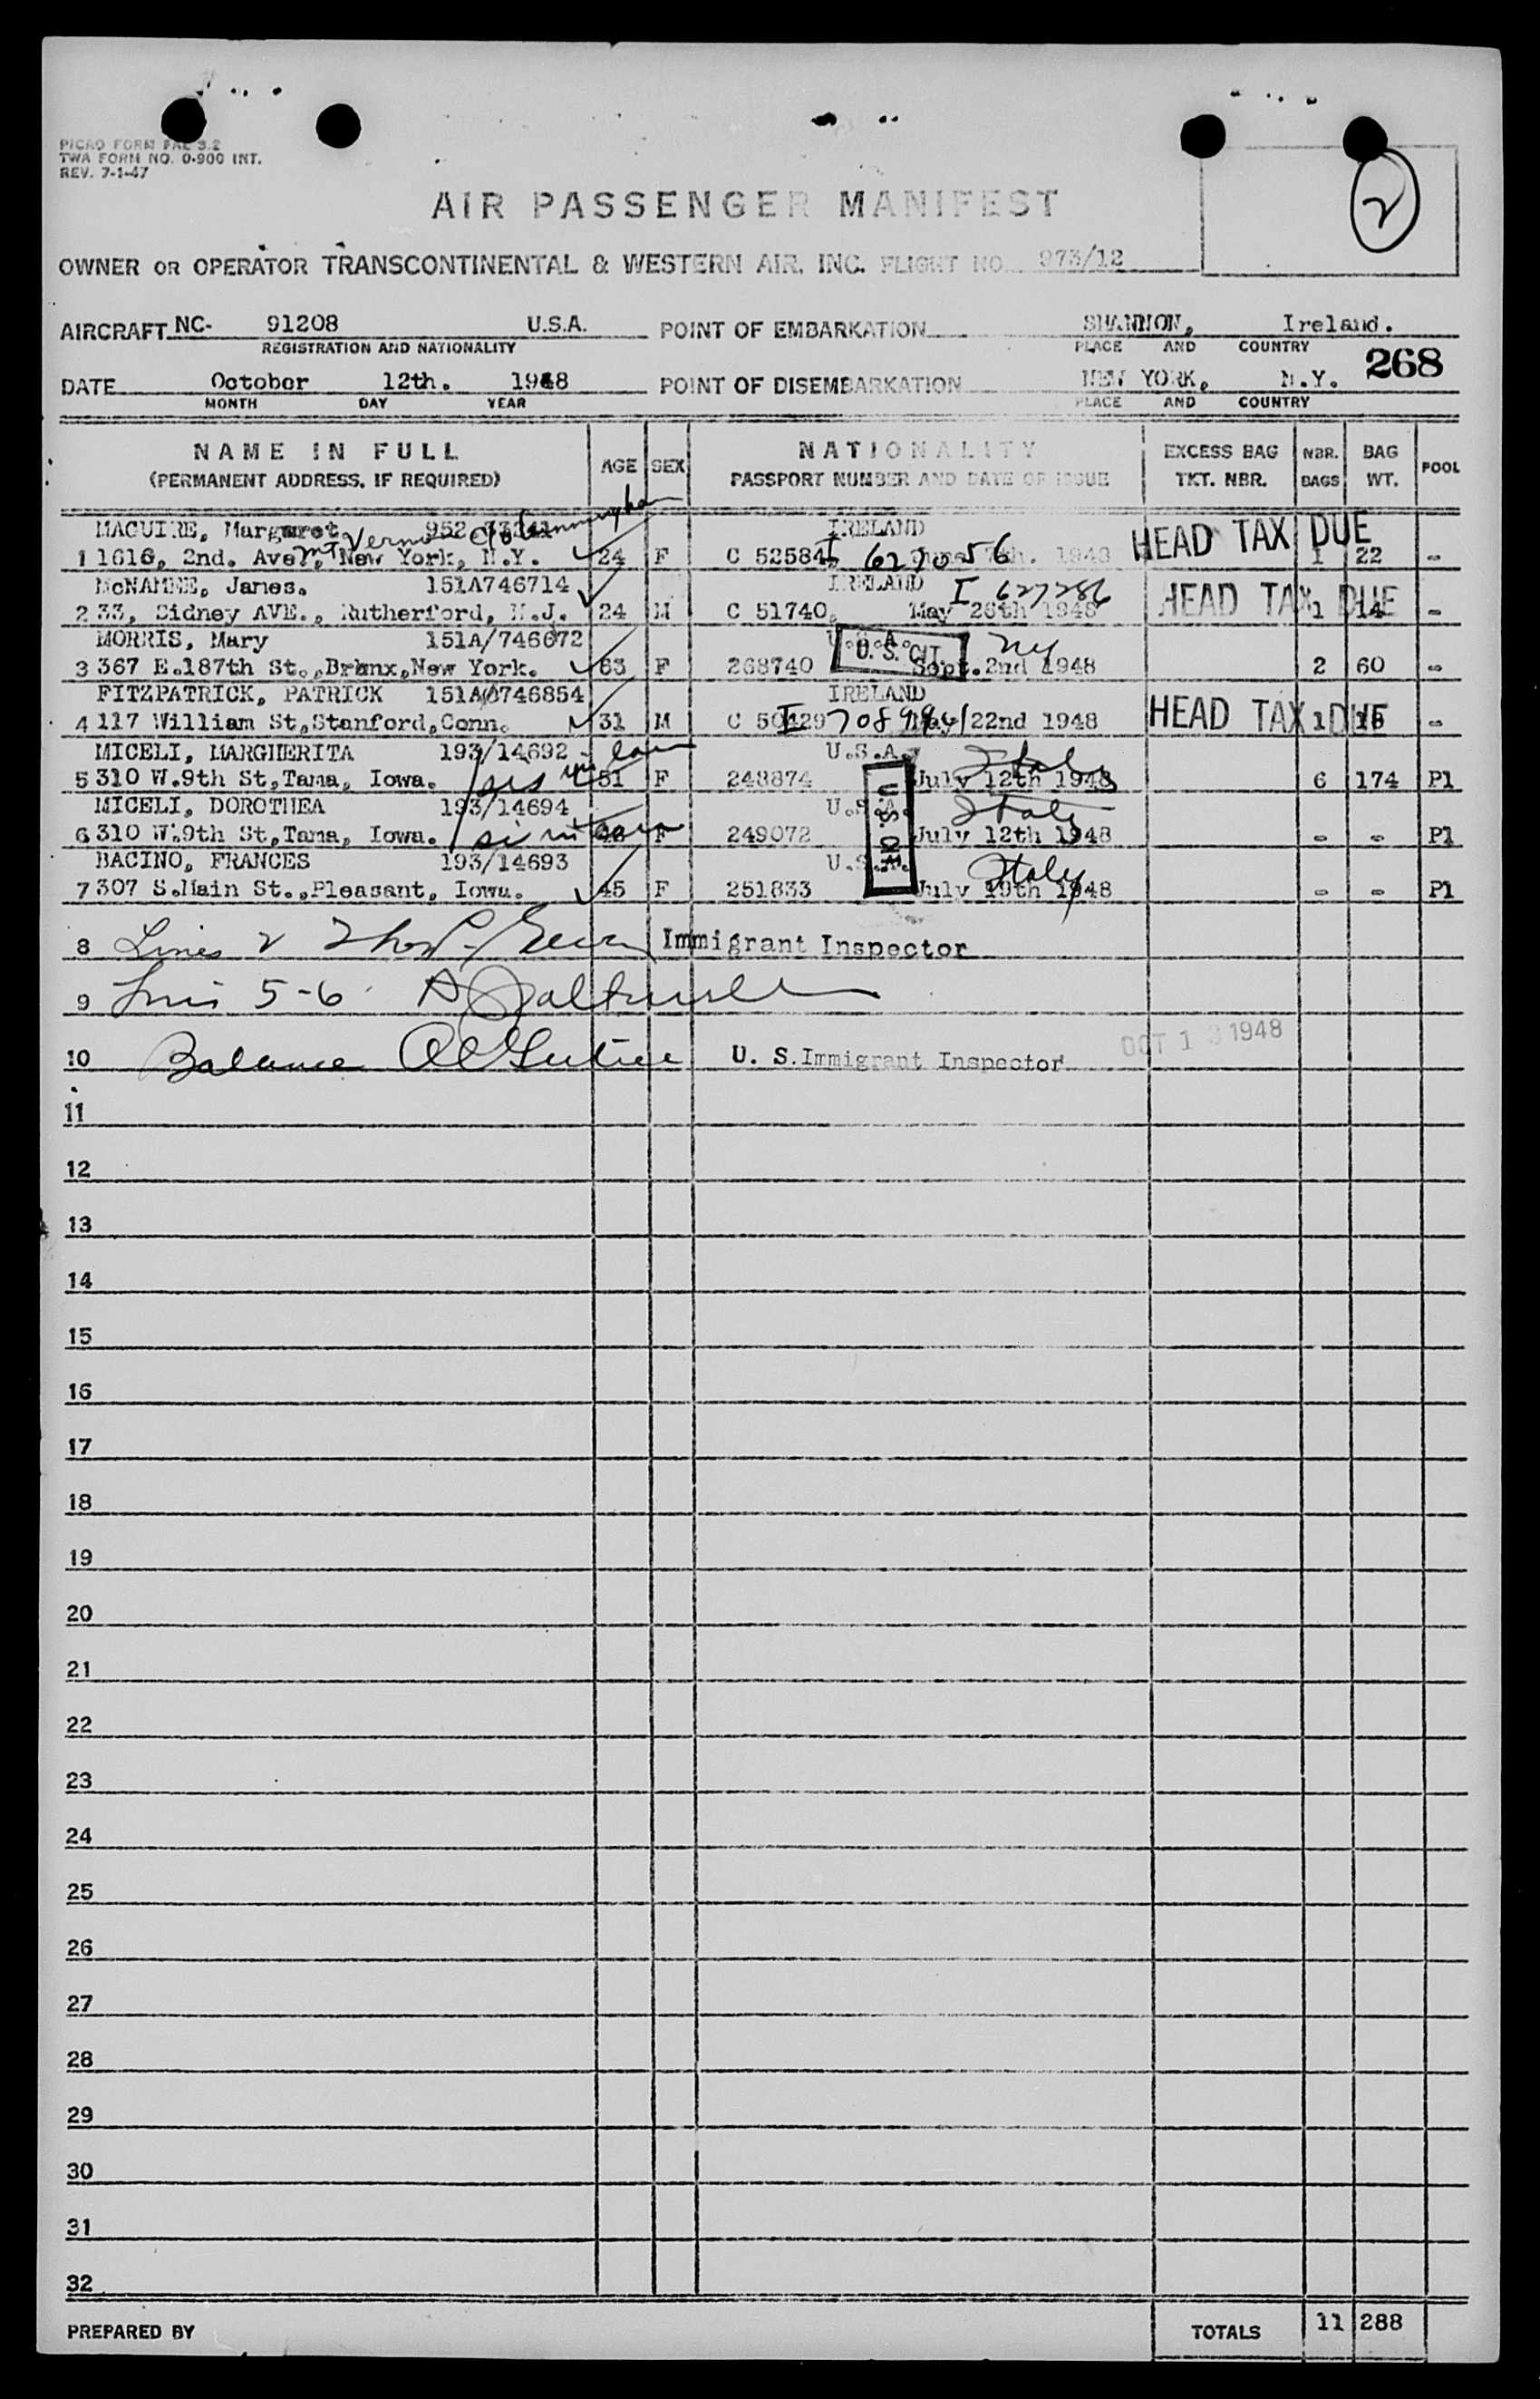 PICAO FORM PAC 3.2
TWA FORM NO. 0-900 INT.
REV. 7-1-47
2
AIR PASSENGER MANIFEST
OWNER OR OPERATOR TRANSCONTINENTAL & WESTERN AIR, INC. FLIGHT NO. 973/12
AIRCRAFT NC- 91208 U.S.A. POINT OF EMBARKATION SHANNON, Ireland.
REGISTRATION AND NATIONALITY PLACE AND COUNTRY
268
DATE October 12th. 1948 POINT OF DISEMBARKATION NEW YORK, N.Y.
MONTH DAY YEAR PLACE AND COUNTRY
NAME IN FULL AGE SEX NATIONALITY EXCESS BAG NBR. BAG POOL
(PERMANENT ADDRESS, IF REQUIRED) PASSPORT NUMBER AND DATE OF ISSUE TKT. NBR. BAGS WT.
MAGUIRE, Margaret 952 c/o Cunningham IRELAND HEAD TAX DUE
1 1616, 2nd. Ave, Mt Vernon New York, N.Y. 24 F C 52584 I 627056 June 7th. 1948 1 22 -
McNAMEE, James. 151A746714 IRELAND I 627286 HEAD TAX DUE
2 33, Sidney AVE., Rutherford, N.J. 24 M C 51740, May 26th 1948 1 14 -
MORRIS, Mary 151A/746672 U.S.A. U.S. CIT NY
3 367 E.187th St., Bronx, New York. 63 F 268740 Sept. 2nd 1948 2 60 -
FITZPATRICK, PATRICK 151A/746854 IRELAND HEAD TAX DUE
4 117 William St, Stanford, Conn. 31 M C 50429 I 708994 May 22nd 1948 1 18 -
MICELI, MARGHERITA 193/14692 U.S.A. Italy
5 310 W.9th St, Tama, Iowa. sis in law 51 F 248874 July 12th 1948 6 174 P1
MICELI, DOROTHEA 193/14694 U.S.A. Italy
6 310 W.9th St, Tama, Iowa. F 249072 July 12th 1948 - - P1
BACINO, FRANCES 193/14693 U.S.A. Italy
7 307 S.Main St., Pleasant, Iowa. 45 F 251833 July 19th 1948 - - P1
8 Lines Immigrant Inspector
9 5-6
10 Balance U. S. Immigrant Inspector OCT 13 1948
11
12
13
14
15
16
17
18
19
20
21
22
23
24
25
26
27
28
29
30
31
32
PREPARED BY TOTALS 11 288